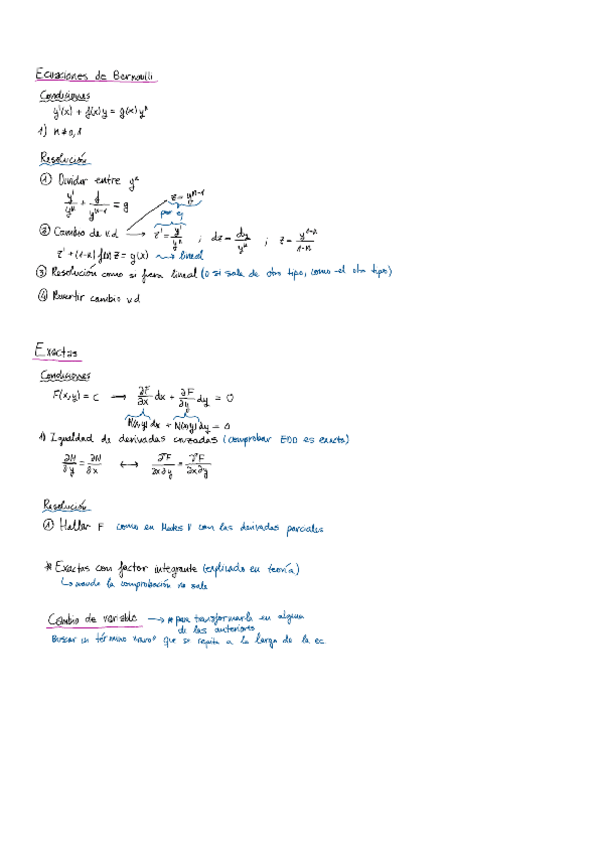 Ecuaciones de Bernoulli
Condiciones
y'(x) + f(x)y = g(x)yⁿ
1) n≠0,1
Resolución
① Dividir entre yⁿ
y'/yⁿ + f/yⁿ⁻¹ = g
z = yⁿ⁻¹
por ej
② Cambio de v.d → z' = y'/yⁿ ; dz = dy/yⁿ ; z = y¹⁻ⁿ/1-n
z' + (1-n) f(x) z = g(x) → lineal
③ Resolución como si fuera lineal (o si sale de otro tipo, como el otro tipo)
④ Revertir cambio v.d
Exactas
Condiciones
F(x,y) = C → ∂F/∂x dx + ∂F/∂y dy = 0
M(x,y) dx + N(x,y) dy = 0
1) Igualdad de derivadas cruzadas (comprobar EDO es exacta)
∂M/∂y = ∂N/∂x ↔ ∂²F/∂x∂y = ∂²F/∂x∂y
Resolución
① Hallar F como en Mates II con las derivadas parciales
* Exactas con factor integrante (explicado en teoría)
↳ cuando la comprobación no sale
Cambio de variable → * para transformarla en alguna
de las anteriores
Buscar un término "raro" que se repita a lo largo de la ec.